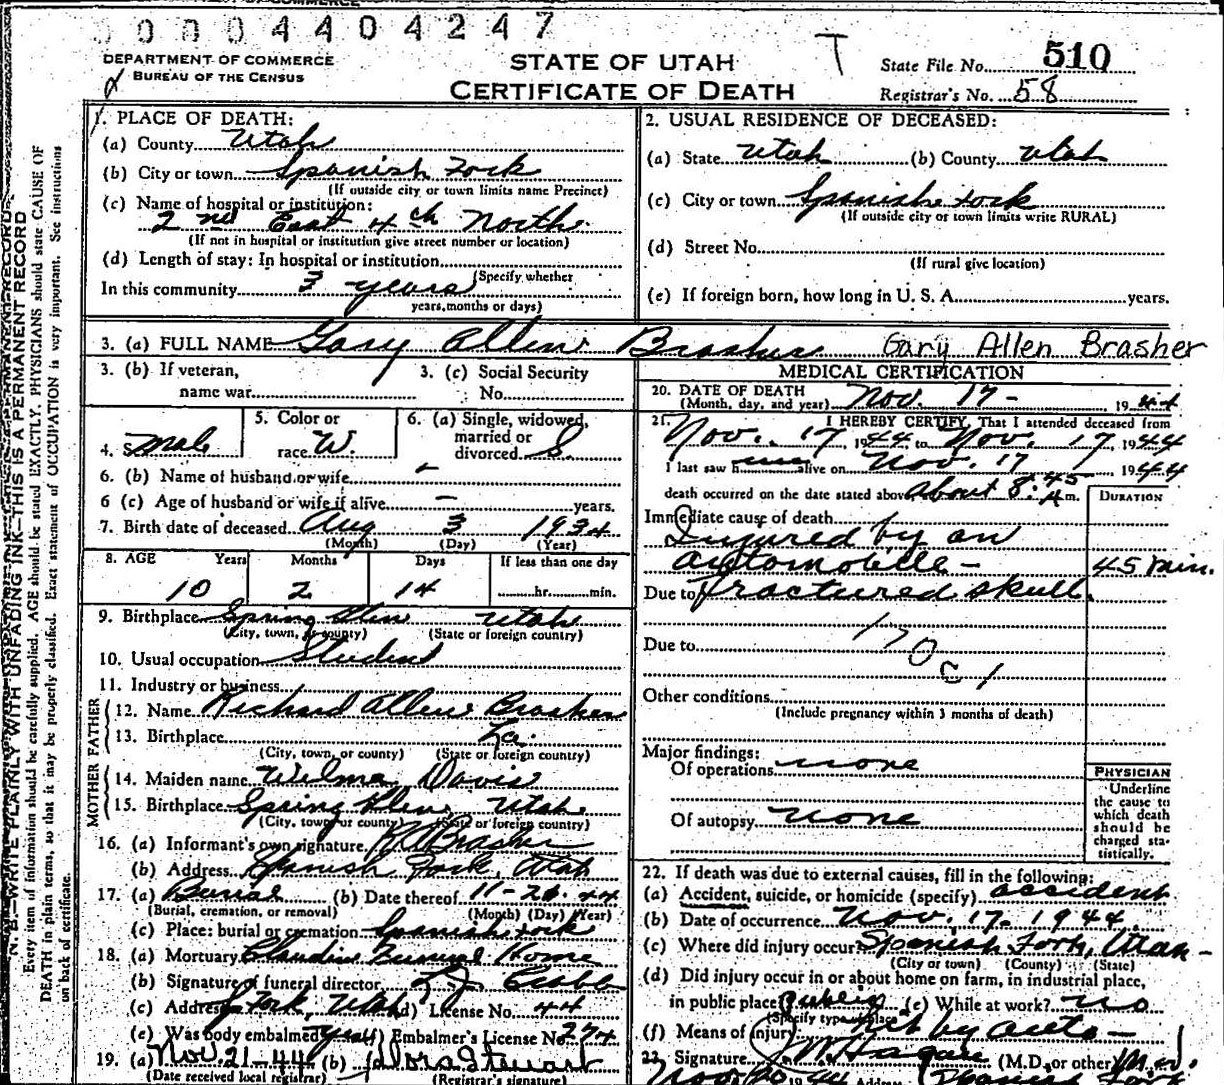 00004404247
DEPARTMENT OF COMMERCE
BUREAU OF THE CENSUS
STATE OF UTAH
CERTIFICATE OF DEATH
T
State File No. 510
Registrar's No. 58
N. B.—WRITE PLAINLY WITH UNFADING INK—THIS IS A PERMANENT RECORD
Every item of information should be carefully supplied. AGE should be stated EXACTLY. PHYSICIANS should state CAUSE OF
DEATH in plain terms, so that it may be properly classified. Exact statement of OCCUPATION is very important. See instructions
on back of certificate.
1. PLACE OF DEATH:
(a) County Utah
(b) City or town Spanish Fork
(If outside city or town limits name Precinct)
(c) Name of hospital or institution:
2nd East 4th North
(If not in hospital or institution give street number or location)
(d) Length of stay: In hospital or institution
(Specify whether
In this community 3 years
years, months or days)
2. USUAL RESIDENCE OF DECEASED:
(a) State Utah (b) County Utah
(c) City or town Spanish Fork
(If outside city or town limits write RURAL)
(d) Street No.
(If rural give location)
(e) If foreign born, how long in U. S. A. years.
3. (a) FULL NAME Gary Allen Brasher Gary Allen Brasher
3. (b) If veteran,
name war
3. (c) Social Security
No.
4. Sex Male
5. Color or
race W.
6. (a) Single, widowed,
married or
divorced S.
6. (b) Name of husband or wife –
6 (c) Age of husband or wife if alive – years.
7. Birth date of deceased Aug 3 1934
(Month) (Day) (Year)
8. AGE Years Months Days If less than one day
10 2 14 hr. min.
9. Birthplace Spring Glen Utah
(City, town, or county) (State or foreign country)
10. Usual occupation Student
11. Industry or business
FATHER
12. Name Richard Allen Brasher
13. Birthplace La.
(City, town, or county) (State or foreign country)
MOTHER
14. Maiden name Wilma Davis
15. Birthplace Spring Glen Utah
(City, town or county) (State or foreign country)
16. (a) Informant's own signature R A Brasher
(b) Address Spanish Fork, Utah
17. (a) Burial (b) Date thereof 11-20-44
(Burial, cremation, or removal) (Month) (Day) (Year)
(c) Place: burial or cremation Spanish Fork
18. (a) Mortuary Claudin Funeral Home
(b) Signature of funeral director
(c) Address Fork, Utah (d) License No. 44
(e) Was body embalmed yes (f) Embalmer's License No. 274
19. (a) Nov. 21-44 (b) Dora Stewart
(Date received local registrar) (Registrar's signature)
MEDICAL CERTIFICATION
20. DATE OF DEATH
(Month, day, and year) Nov. 17 - 1944
21. I HEREBY CERTIFY, That I attended deceased from
Nov. 17, 1944 to Nov. 17, 1944
I last saw him alive on Nov. 17 1944
death occurred on the date stated above about 8:45 A.m.
DURATION
Immediate cause of death
Injured by an
automobile - 45 min.
Due to fractured skull.
Due to
170 c 1
Other conditions
(Include pregnancy within 3 months of death)
Major findings:
Of operations none
Of autopsy none
PHYSICIAN
Underline
the cause to
which death
should be
charged sta-
tistically.
22. If death was due to external causes, fill in the following:
(a) Accident, suicide, or homicide (specify) accident
(b) Date of occurrence Nov. 17, 1944
(c) Where did injury occur? Spanish Fork, Utah -
(City or town) (County) (State)
(d) Did injury occur in or about home on farm, in industrial place,
in public place? Public (e) While at work? no
(Specify type of place)
(f) Means of injury hit by auto -
23. Signature J. W. Hagan (M.D. or other) M.D.
Nov 20 1944 Address Spanish Fork